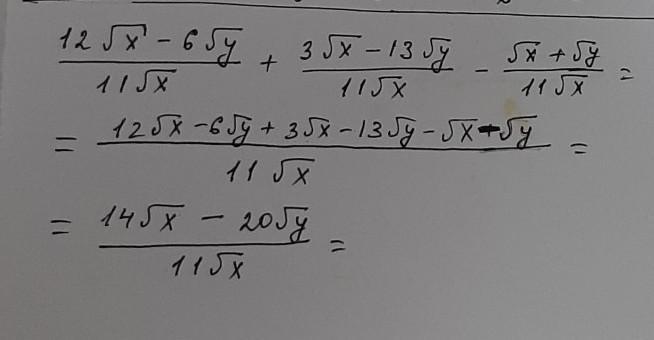 (12√x − 6√y)/(11√x) + (3√x − 13√y)/(11√x) − (√x + √y)/(11√x) =
= (12√x − 6√y + 3√x − 13√y − √x − √y)/(11√x) =
= (14√x − 20√y)/(11√x) =